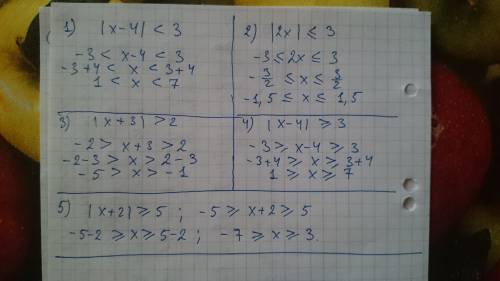 1) |x-4| < 3
-3 < x-4 < 3
-3+4 < x < 3+4
1 < x < 7
2) |2x| ≤ 3
-3 ≤ 2x ≤ 3
-3/2 ≤ x ≤ 3/2
-1,5 ≤ x ≤ 1,5
3) |x+3| > 2
-2 > x+3 > 2
-2-3 > x > 2-3
-5 > x > -1
4) |x-4| ≥ 3
-3 ≥ x-4 ≥ 3
-3+4 ≥ x ≥ 3+4
1 ≥ x ≥ 7
5) |x+2| ≥ 5 ; -5 ≥ x+2 ≥ 5
-5-2 ≥ x ≥ 5-2 ; -7 ≥ x ≥ 3